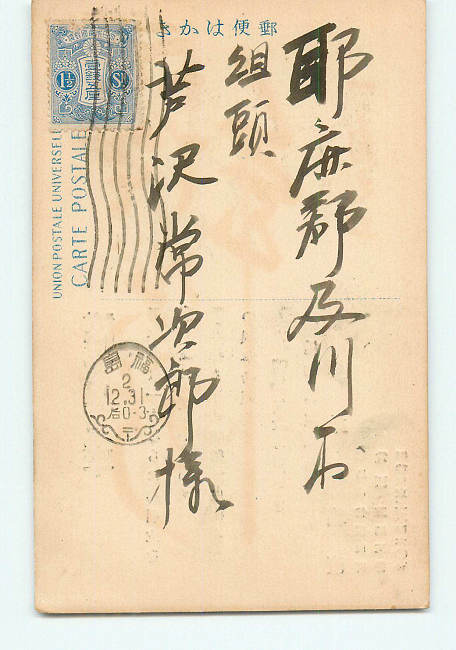 郵便はかき
耶麻郡及川
組頭
芦沢常次郎様
壹錢五厘
1½ Sⁿ
UNION POSTALE UNIVERSELLE
CARTE POSTALE
福島
2
12.31
后0-3